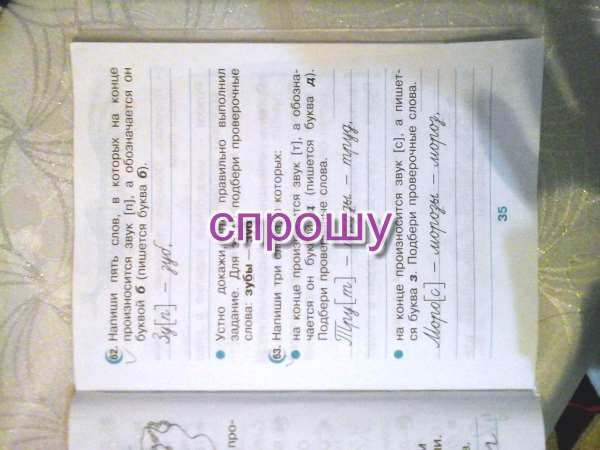 62. Напиши пять слов, в которых на конце
произносится звук [п], а обозначается он
буквой б (пишется буква б).
Зу[п] – зуб.
Устно докажи, правильно выполнил
задание. Для подбери проверочные
слова: зубы –
63. Напиши три которых:
на конце произносится звук [т], а обозна-
чается он буквой (пишется буква д).
Подбери слова.
Тру[т] – – труд.
на конце произносится звук [с], а пишет-
ся буква з. Подбери проверочные слова.
Моро[с] – морозы – мороз.
35
про-
спрошу